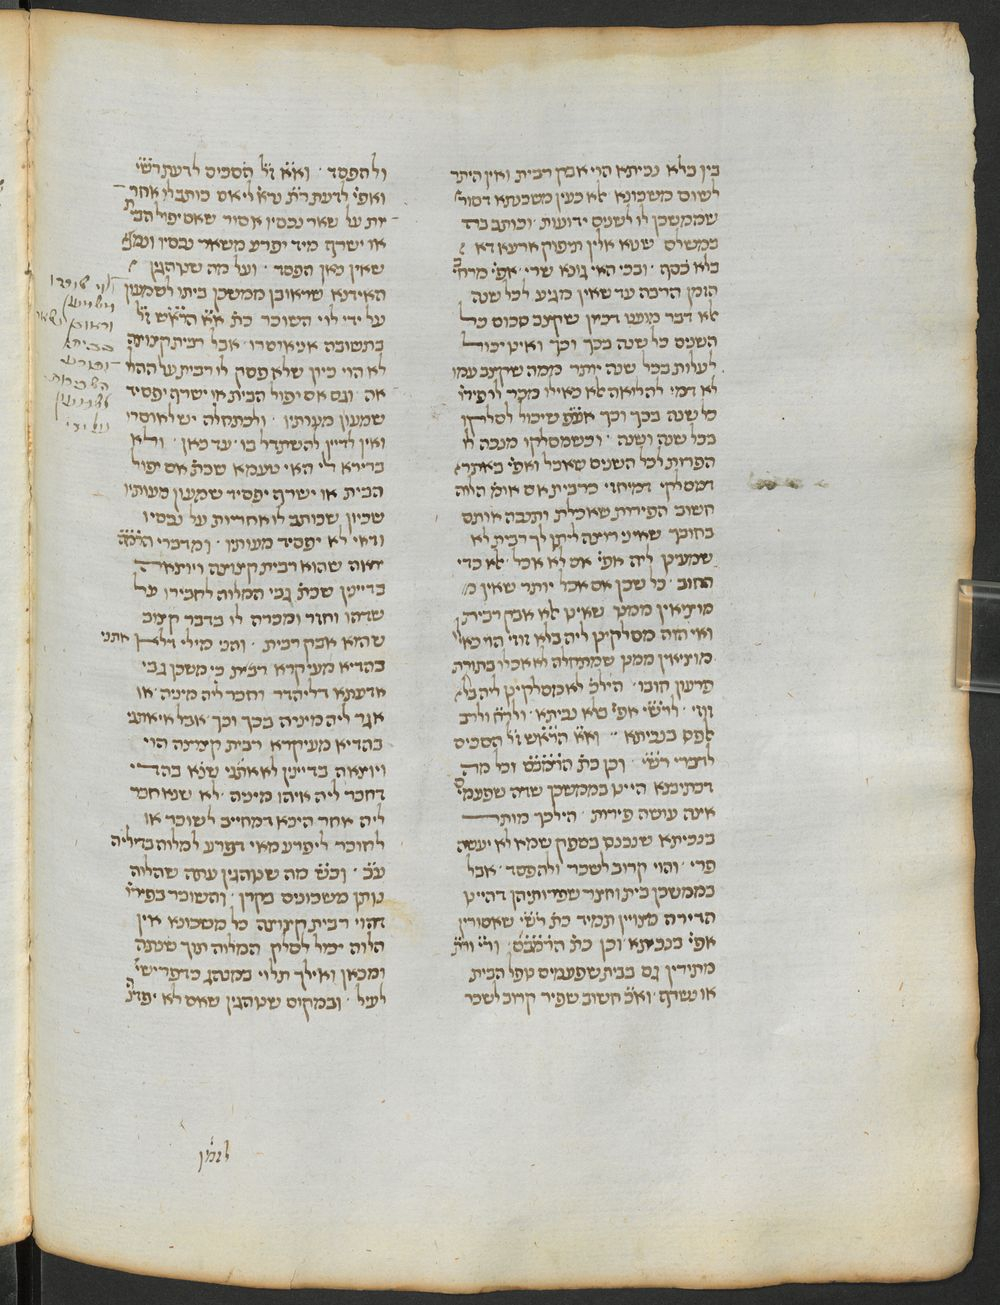 בין בלא נכיתא הוי אבק רבית ואין היתר
לשום משכונא אלא כעין משכנתא דסורא
שממשכן לו לשנים ידועות וכותב בה
במשלם שנים אלין תיפוק ארעא דא
בלא כסף ובכי האי גונא שרי אפי׳ מרחי׳
הזמן הרבה עד שאין מגיע לכל שנה
אלא דבר מועט דכיון שקצב סכום כל
השנים כל שנה בכך וכך ואינו יכול
לעלות בכל שנה יותר ממה שקצב עמו
לא דמי להלואה אלא כאילו מכר לו פירו׳
כל שנה בכך וכך אע״פ שיכול לסלקו
בכל שנה ושנה וכשמסלקו מנכה לו
הפרות לכל השנים שאכל ואפי׳ באתרא
דמסלקי דמיחזי כרבית אם אומ׳ הלוה
חשוב הפירות שאכלת ותנכה אותם
בחובך שאיני רוצה ליתן לך רבית לא
שמעינן ליה אפי׳ אם לא אכל אלא כדי
החוב כל שכן אם אכל יותר שאין
מוציאין ממנו שאינו אלא אבק רבית
ואי הוה מסלקינן ליה בלא זוזי הוי כאי׳
מוציאין ממנו שמתחלה לא אכלו בתורת
פרעון חובו הילכ׳ לא מסלקינן ליה בלא
זוזי לרש״י אפי׳ בלא נכיתא ולר״ת ולרב
אלפס בנכיתא וא״א הרא״ש ז״ל הסכים
לדברי רש״י וכן כת׳ הרמב״ם וכל מה
דכתיבנא היינו בממשכן שדה שפעמי׳
אינה עושה פירות הילכך מותר
בנכיתא שנכנס בספק שמא לא יעשה
פרי והוי קרוב לשכר ולהפסד אבל
בממשכן בית וחצר שפירותיהן דהיינו
הדירה מצויין תמיד כת׳ רש״י שאסורין
אפי׳ בנכיתא וכן כת׳ הרמב״ם ור״י ור״ת
מתירין גם בבית שפעמים נופל הבית
או נשרף וא״כ חשוב שפיר קרוב לשכר
ולהפסד וא״א ז״ל הסכים לדעת רש״י
ואפי׳ לדעת ר״ת נרא׳ לי אם כותב לו אחר
יות על שאר נכסיו אסור שאם יפול הבית
או ישרף מיד יפרע משאר נכסיו ונמצא
שאין כאן הפסד ועל מה שנוהגין
האידנא שראובן ממשכן ביתו לשמעון
על ידי לוי השוכר כת׳ א״א הרא״ש ז״ל
בתשובה אני אוסרו אבל רבית קצוצה
לא הוי כיון שלא פסק לו רבית על ההלו
אה וגם אם יפול הבית או ישרף יפסיד
שמעון מעותיו ולכתחלה יש לאוסרו
ואין לדיין להשתדל בו עד כאן ולא
בדירא לי האי טעמא שכת׳ אם יפול
הבית או ישרף יפסיד שמעון מעותיו
שכיון שכותב לו אחריות על נכסיו
ודאי לא יפסיד מעותיו ומדברי הרמ״ה
יראה שהוא רבית קצוצה ויוצאה
בדיינין שכת׳ גבי המלוה לחבירו על
שדהו וחזר ומכרה לו בדבר קצוב
שהוא אבק רבית והני מילי דלא אתני
בהדיא מעיקרא רבית כי משכן גבי
אדעתא דליהדר וחכר ליה מיניה או
אגר ליה מיניה בכך וכך אבל אי אתני
בהדיא מעיקרא רבית קצוצה הוי
ויוצאה בדיינין לא אתני שנא בהדי
דחכר ליה איהו מיניה לא שנא חכר
ליה אחר היכא דמחייב לשוכר או
לחוכר ליפרע מאי דפרע למלוה בדיליה
ע״כ וכ״ש מה שנוהגין עתה שהלוה
נותן משכונים בקרן והשוכר בפירו׳
דהוי רבית קצוצה כל משכונא אין
הלוה יכול לסלק המלוה תוך שנתה
ומכאן ואילך תלוי במנהג כדפרישי׳
לעיל ובמקום שנוהגין שאם לא יפדנ׳
לוי שוכרו
משמעון
וראובן נשאר
בביתו
ופורע
השכירות
לשמעון
על ידי
לזמן